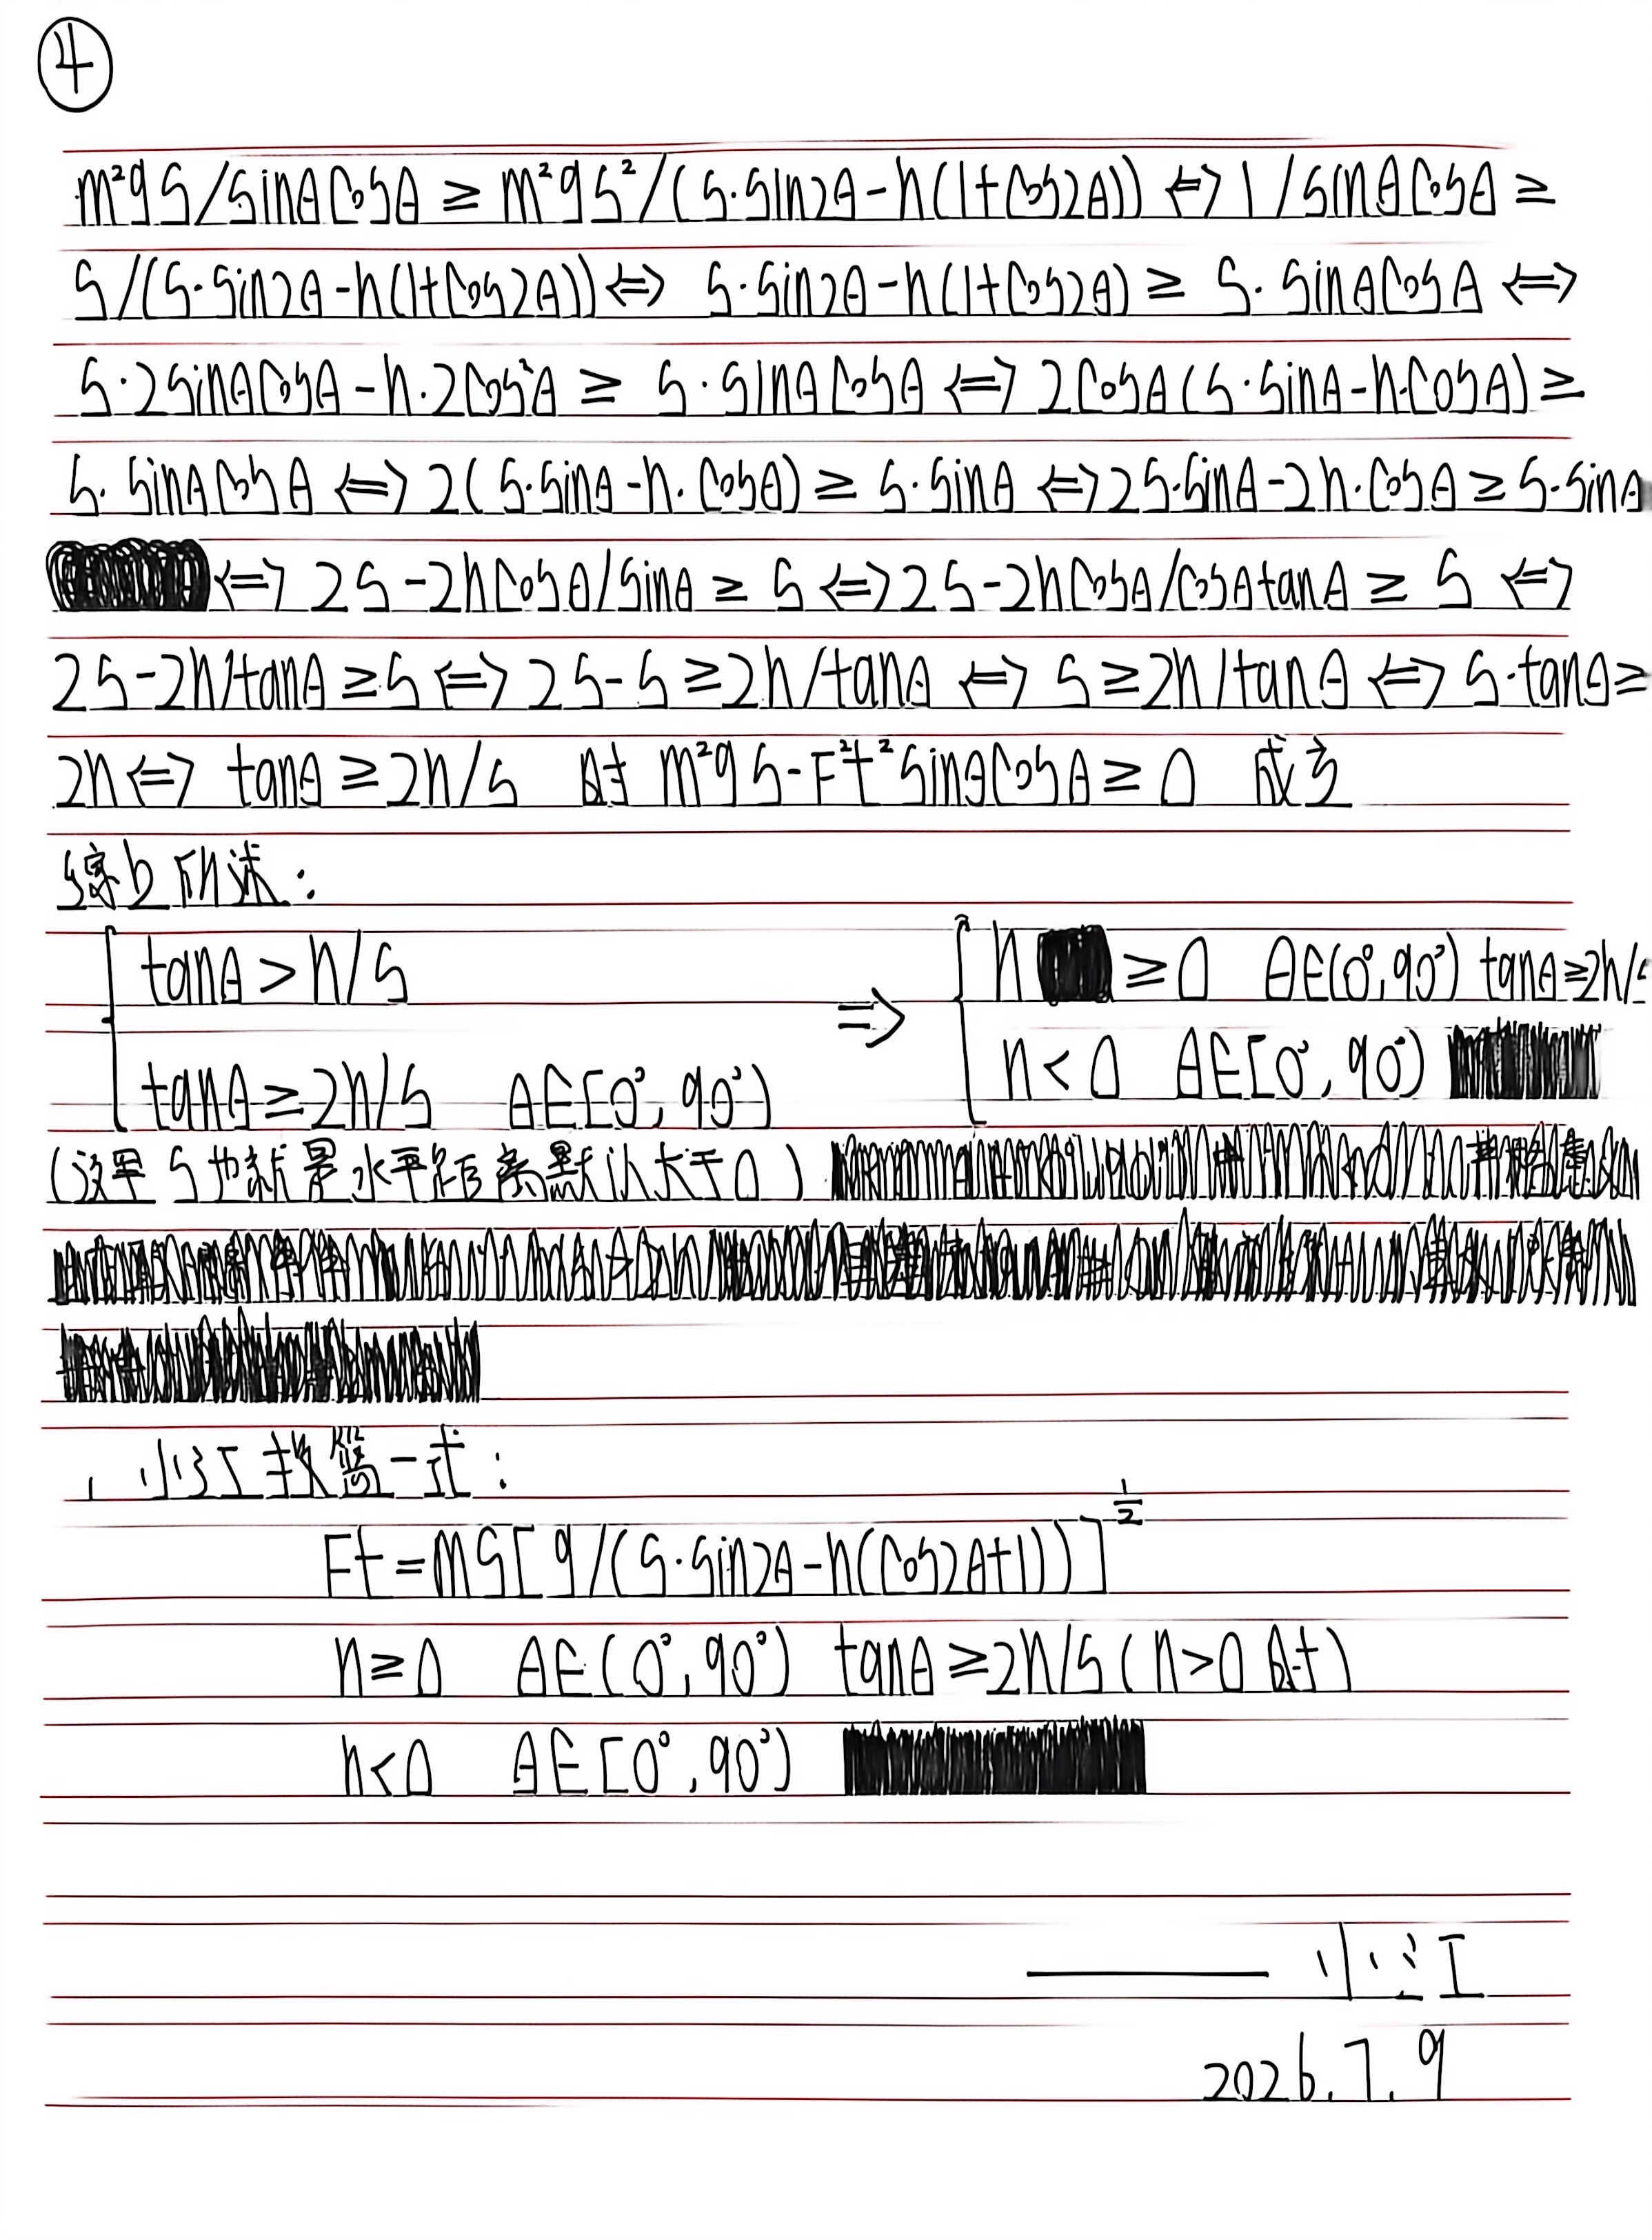 ④
m²gS/sinθcosθ ≥ m²gS²/(S·sin2θ-h(1+cos2θ)) ⇔ 1/sinθcosθ ≥
S/(S·sin2θ-h(1+cos2θ)) ⇔ S·sin2θ-h(1+cos2θ) ≥ S·sinθcosθ ⇔
S·2sinθcosθ-h·2cos²θ ≥ S·sinθcosθ ⇔ 2cosθ(S·sinθ-h·cosθ) ≥
S·sinθcosθ ⇔ 2(S·sinθ-h·cosθ) ≥ S·sinθ ⇔ 2S·sinθ-2h·cosθ ≥ S·sinθ
⇔ 2S-2hcosθ/sinθ ≥ S ⇔ 2S-2hcosθ/cosθtanθ ≥ S ⇔
2S-2h/tanθ ≥ S ⇔ 2S-S ≥ 2h/tanθ ⇔ S ≥ 2h/tanθ ⇔ S·tanθ ≥
2h ⇔ tanθ ≥ 2h/S 时 m²gS-F²t²sinθcosθ ≥ 0 成立
综上所述:
tanθ > h/S
tanθ ≥ 2h/S θ∈[0°,90°)
⇒
h ≥ 0 θ∈(0°,90°) tanθ ≥ 2h/S
h < 0 θ∈[0°,90°)
(这里S也就是水平距离默认大于0)
, 小江投篮一式:
Ft=mS[g/(S·sin2θ-h(cos2θ+1))]^½
h ≥ 0 θ∈(0°,90°) tanθ ≥ 2h/S (h>0时)
h<0 θ∈[0°,90°)
—— 小江
2026.7.9